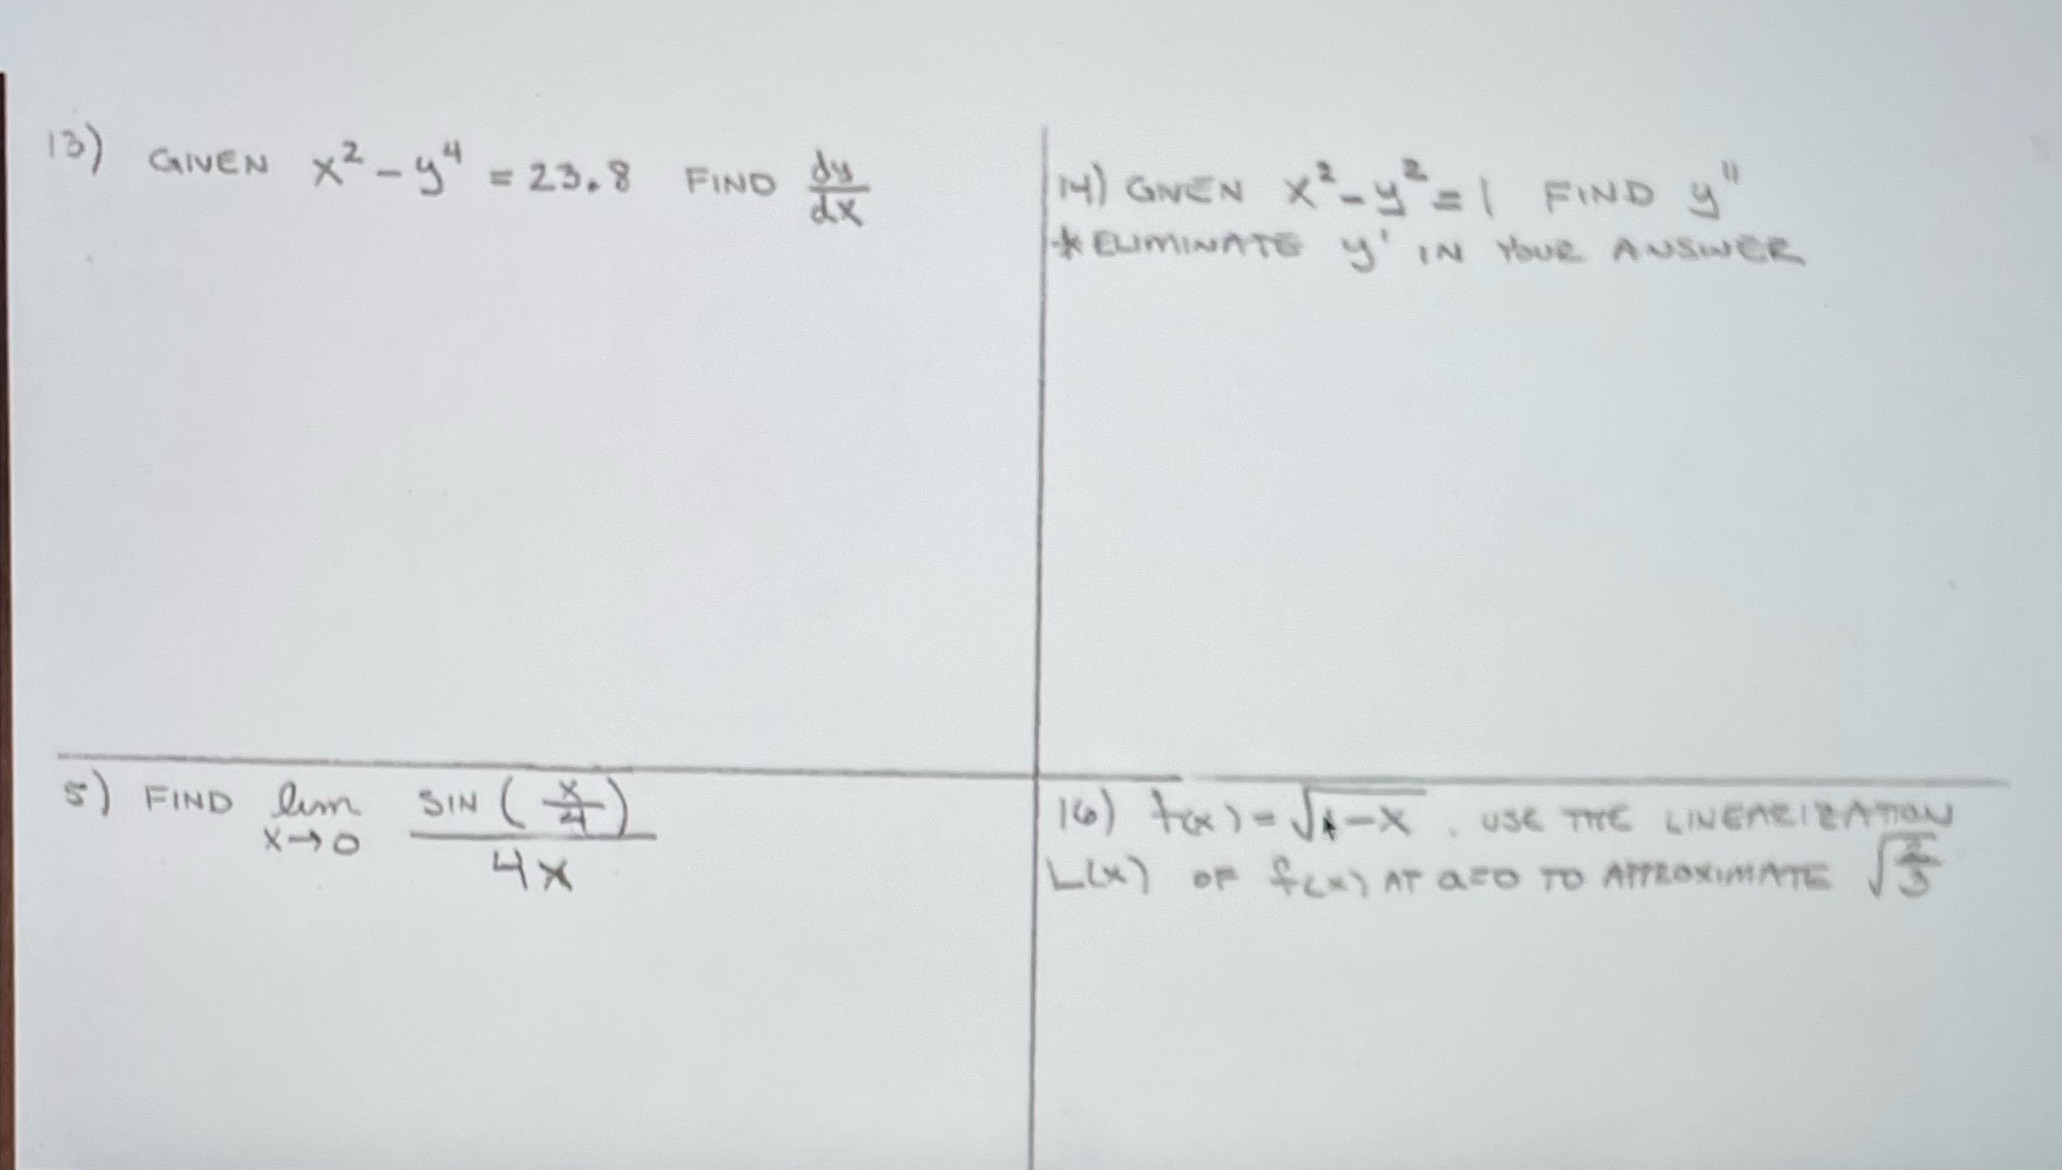 13) GIVEN x² - y⁴ = 23.8 FIND dy/dx
14) GIVEN x² - y² = 1 FIND y"
* ELIMINATE y' IN YOUR ANSWER
5) FIND lim x→0 SIN(x/4) / 4x
16) f(x) = √1-x . USE THE LINEARIZATION
L(x) OF f(x) AT a=0 TO APPROXIMATE √2/3